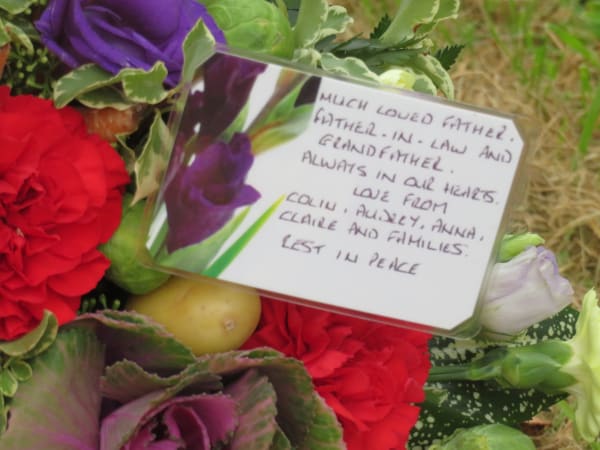 MUCH LOVED FATHER.
FATHER-IN-LAW AND
GRANDFATHER.
ALWAYS IN OUR HEARTS.
LOVE FROM
COLIN, AUDREY, ANNA,
CLAIRE AND FAMILIES.
REST IN PEACE